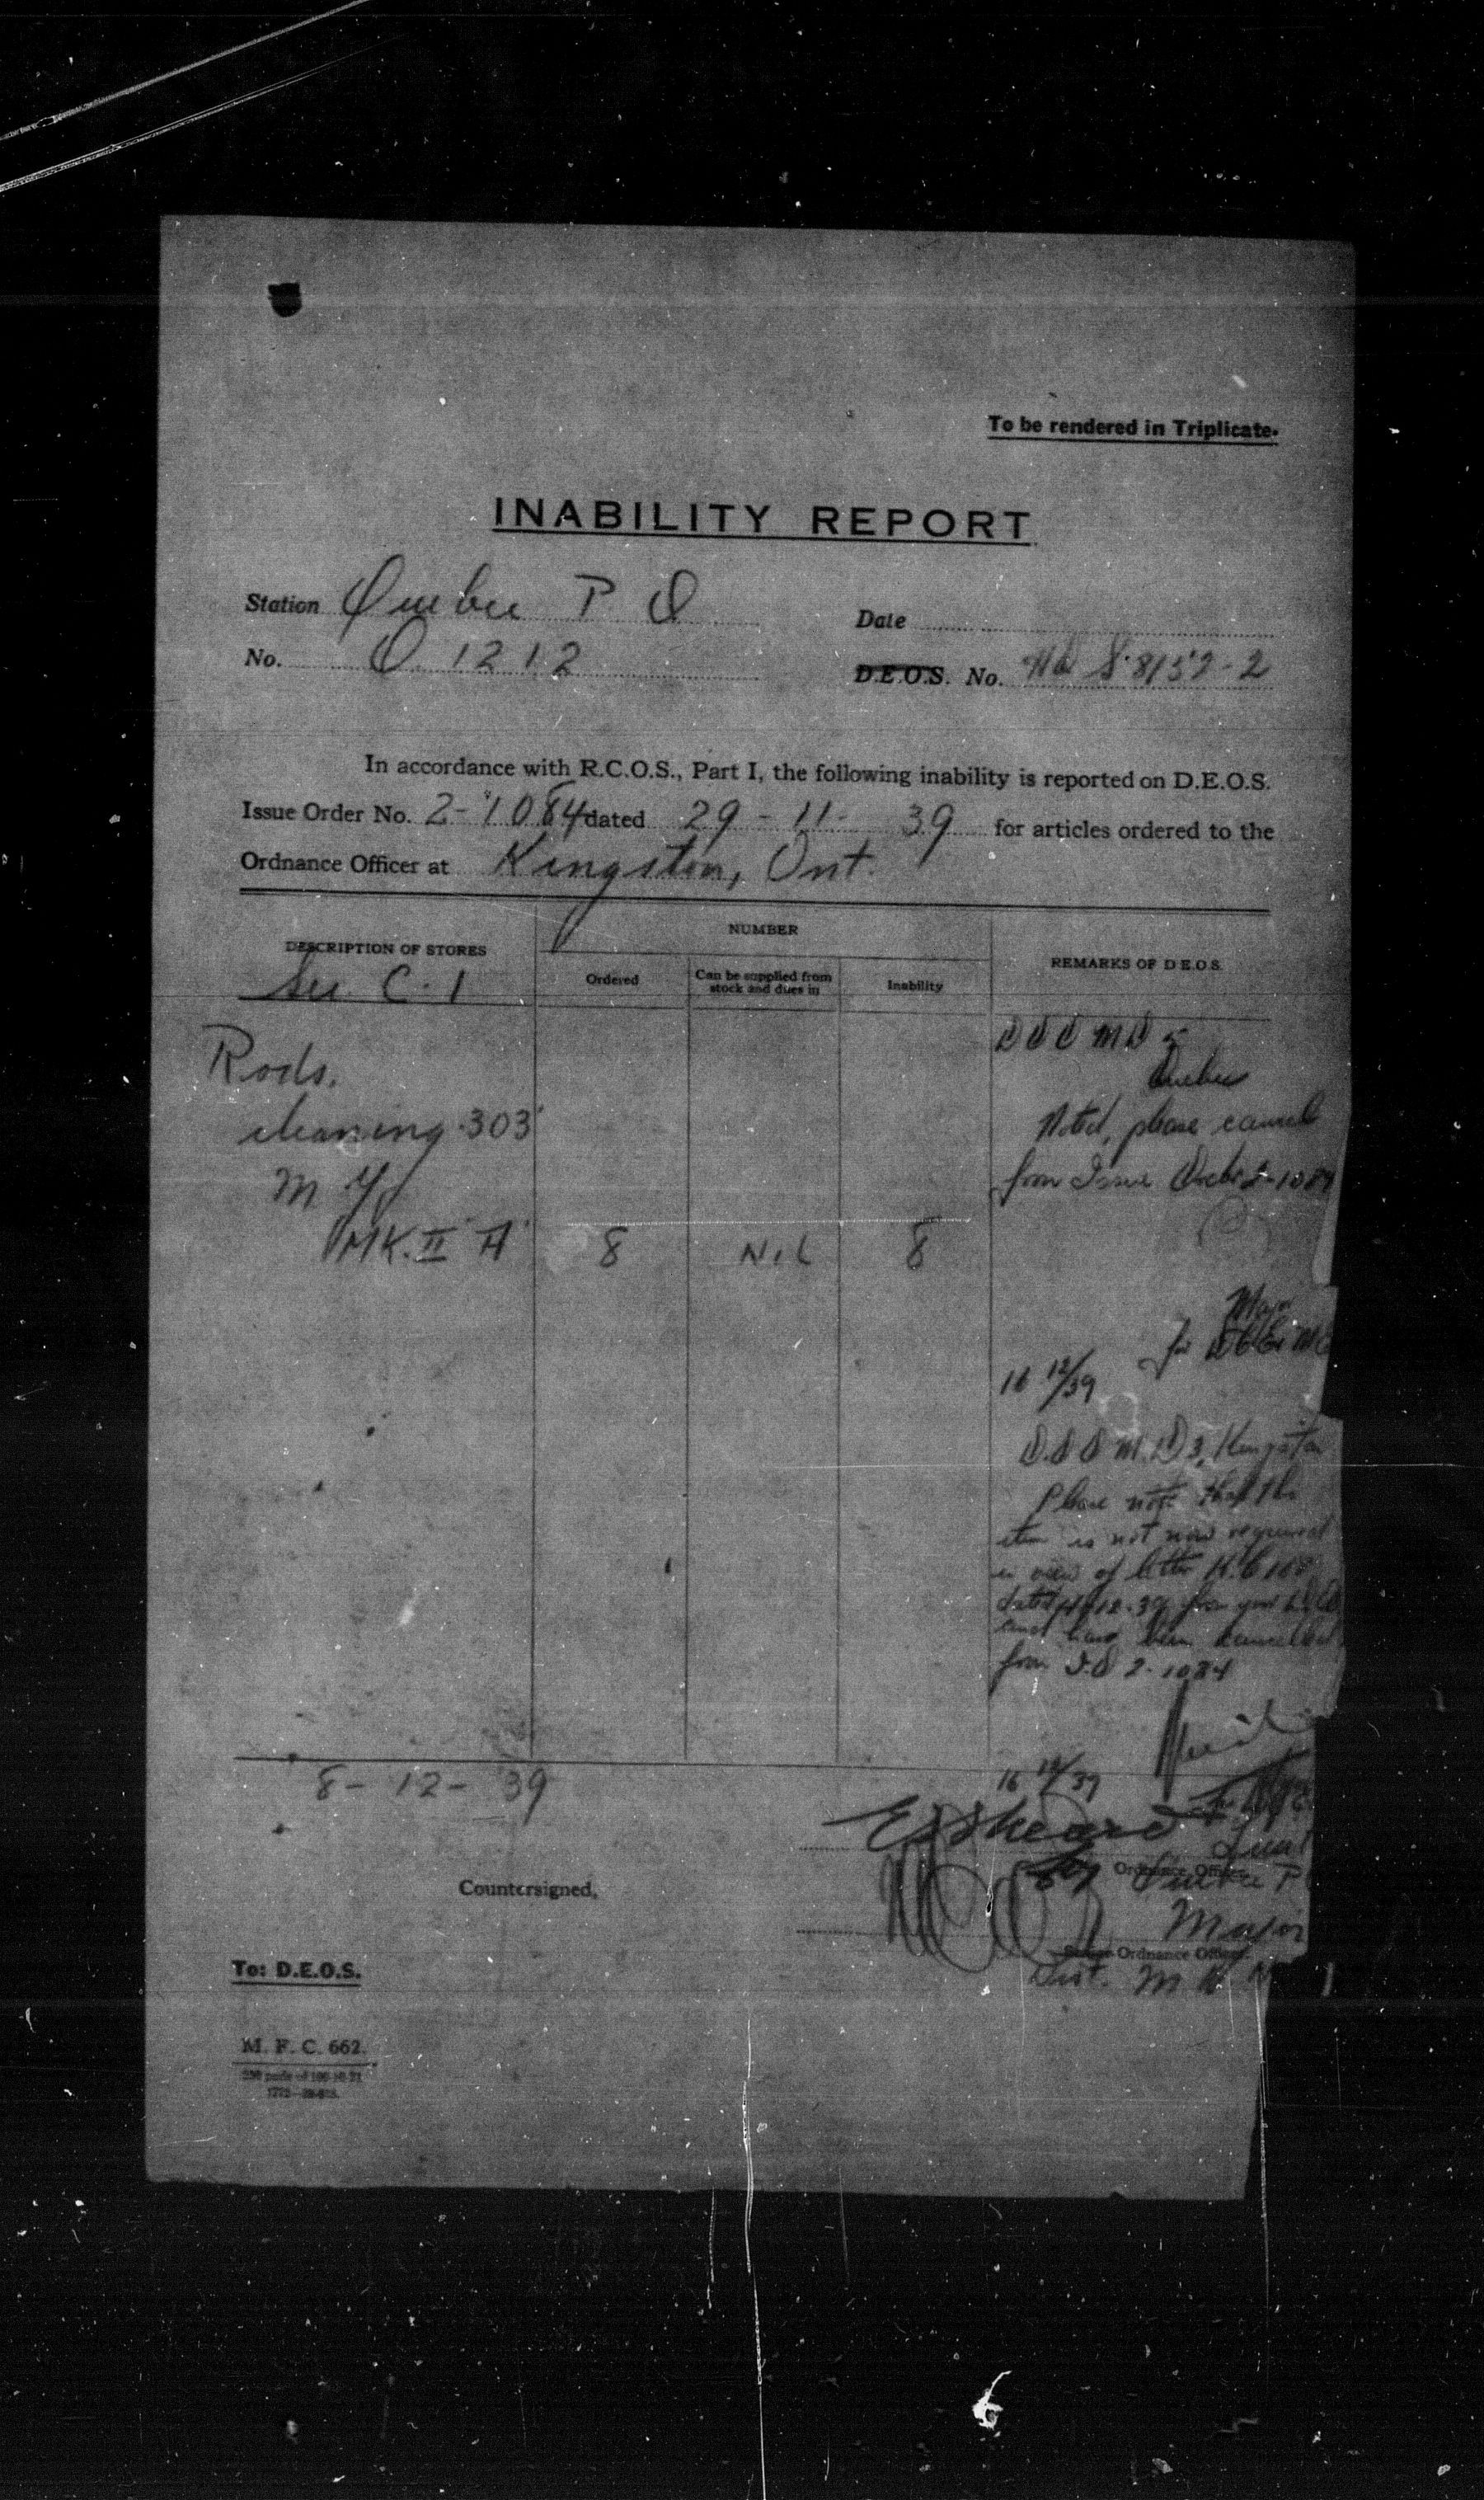 To be rendered in Triplicate.
INABILITY REPORT
Station Quebec P Q
Date
No. Q. 1212
D.E.O.S. No. HQ S.8152-2
In accordance with R.C.O.S., Part I, the following inability is reported on D.E.O.S.
Issue Order No. 2-1084 dated 29-11-39 for articles ordered to the
Ordnance Officer at Kingston, Ont.
DESCRIPTION OF STORES
NUMBER
REMARKS OF D.E.O.S.
Ordered
Can be supplied from
stock and dues in
Inability
Sec. C. 1
Rods,
cleaning .303"
M
MK. II "A" 8 Nil 8
D O O M D 5
Quebec
Noted, please cancel
from Issue Order 2-1084
Major
for
16 12/39
D.O.O M.D 3, Kingston
Please note that this
item is not now required
in view of letter
dated 12.39 from your
and has been cancelled
from I.O 2-1084
16 12/39
8-12-39
Ordnance Officer
Quebec P
Countersigned,
Major
Ordnance Officer.
Dist. M
To: D.E.O.S.
M. F. C. 662.